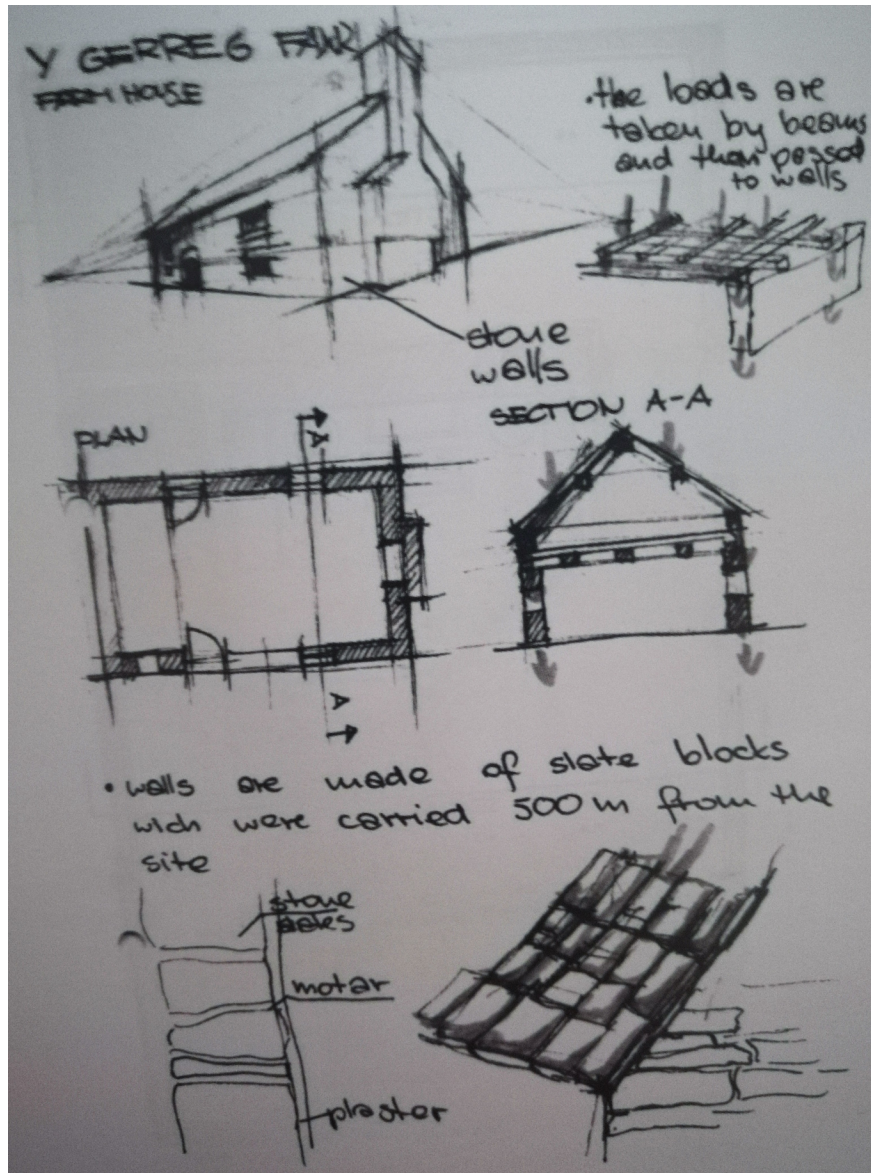 Y GERREG FAWR
FARM HOUSE
• the loads are
taken by beams
and then passed
to walls
stone
walls
PLAN
A
A
SECTION A-A
• walls are made of slate blocks
wich were carried 500 m from the
site
stone
motar
plaster